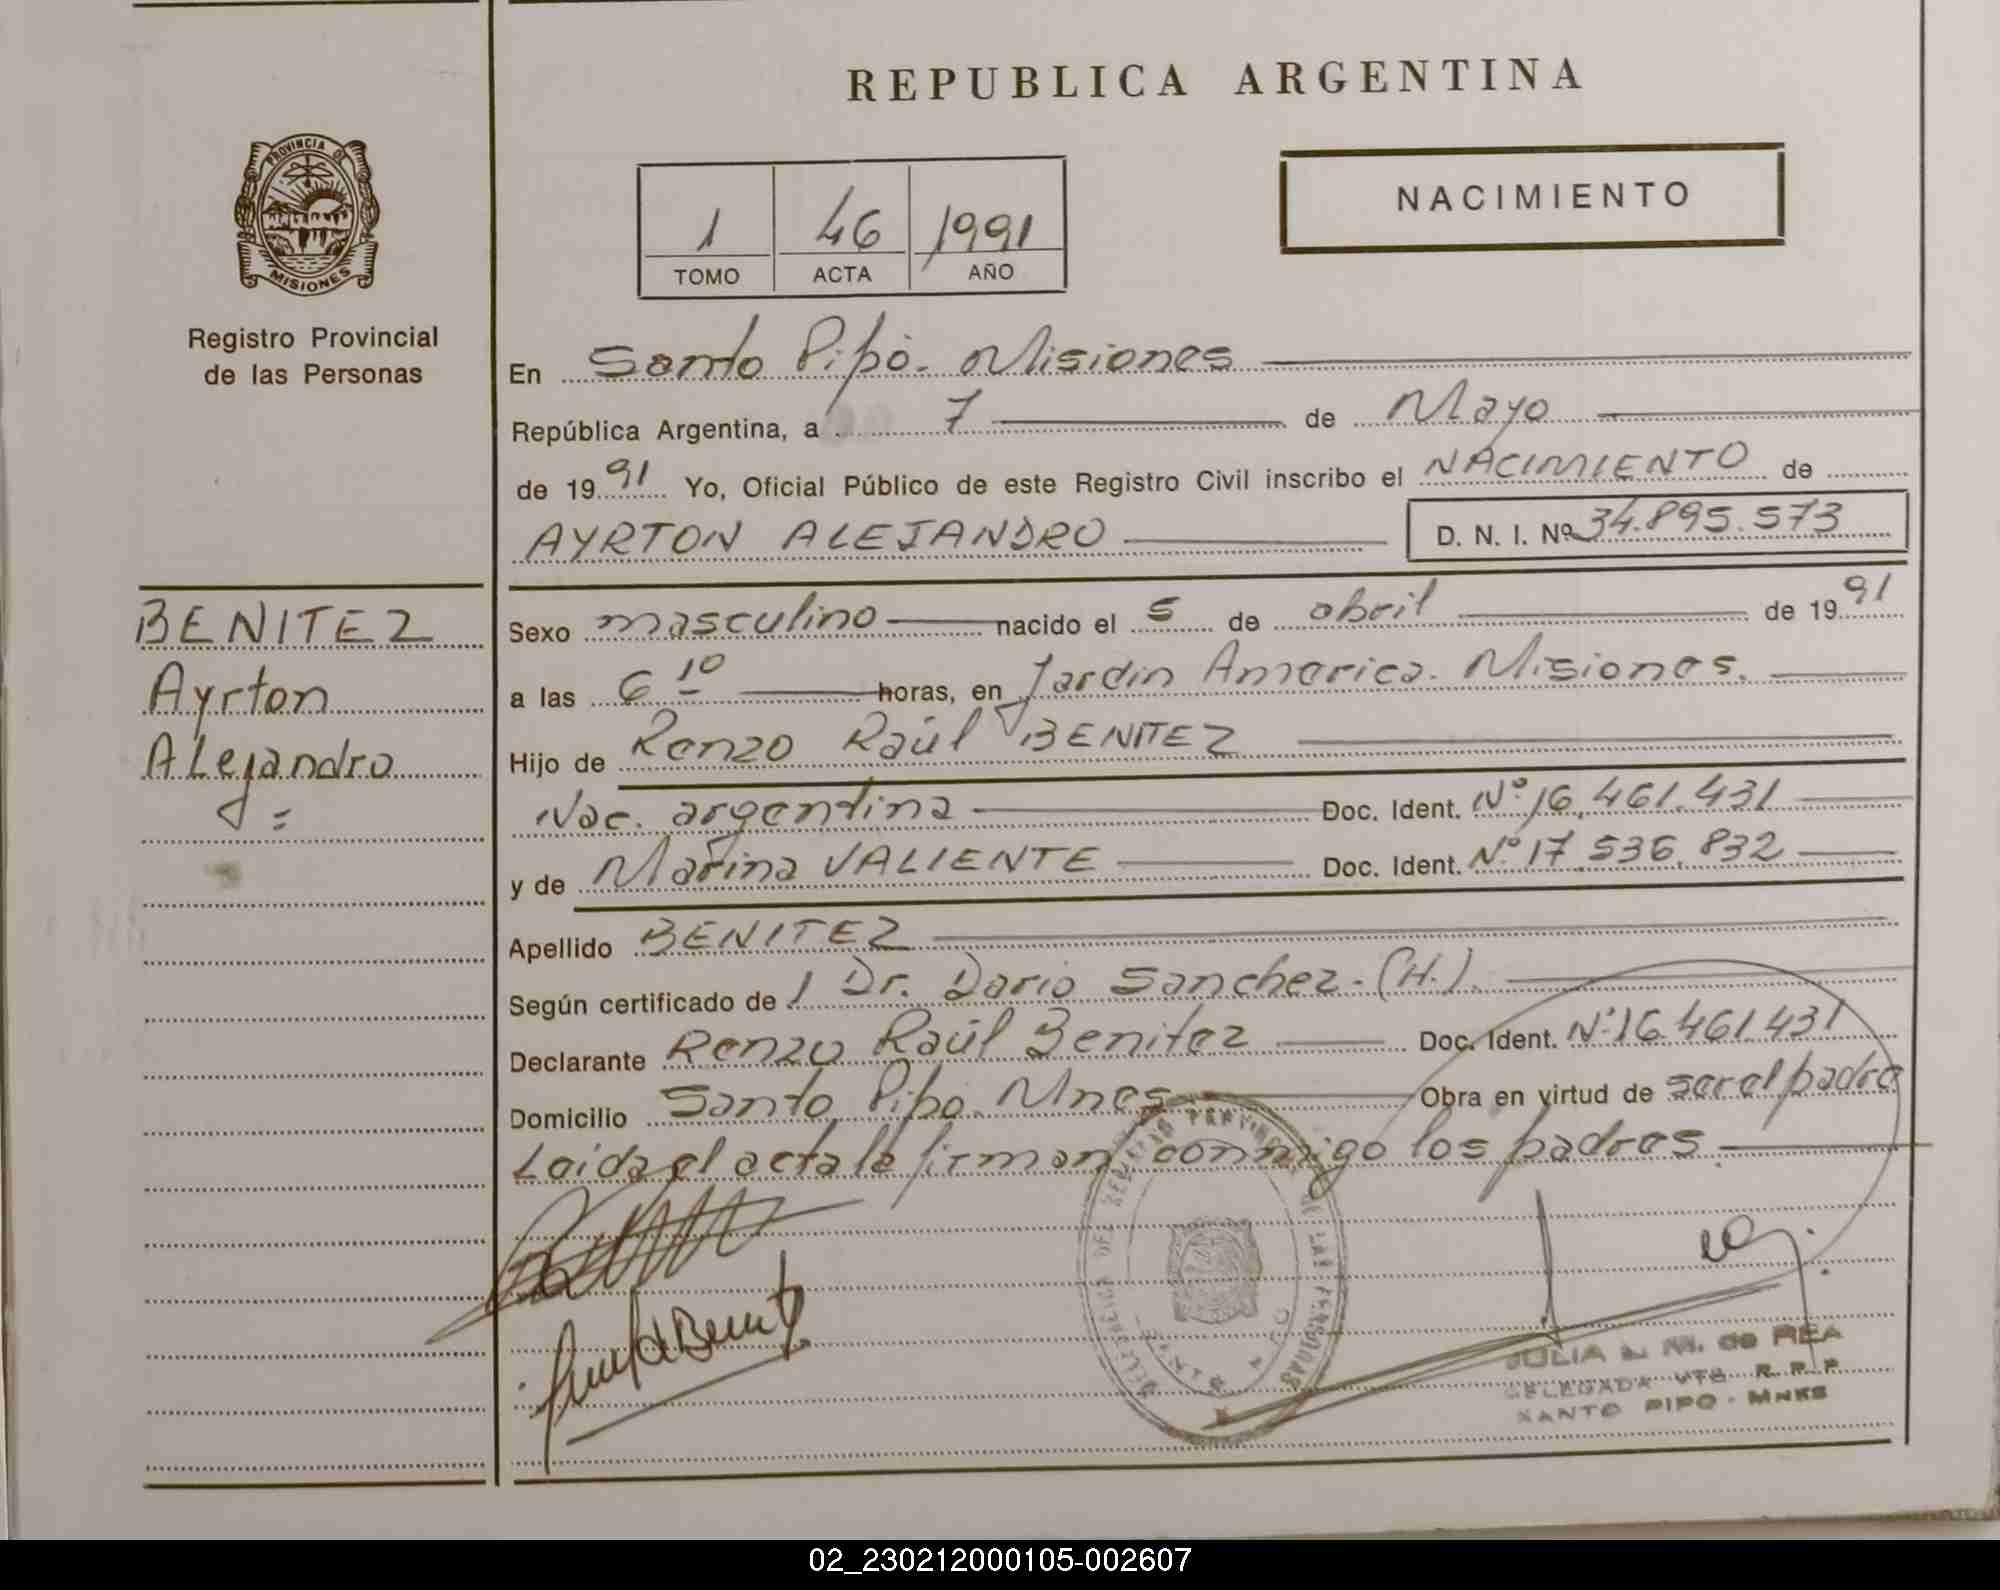 REPUBLICA ARGENTINA
PROVINCIA DE
MISIONES
Registro Provincial
de las Personas
NACIMIENTO
1 46 1991
TOMO ACTA AÑO
En Santo Pipó. Misiones
República Argentina, a 7 de Mayo
de 1991 Yo, Oficial Público de este Registro Civil inscribo el NACIMIENTO de
AYRTON ALEJANDRO D. N. I. Nº 34.895.573
BENITEZ
Ayrton
Alejandro
=
Sexo masculino nacido el 5 de abril de 1991
a las 6 10 horas, en Jardin America. Misiones.
Hijo de Renzo Raúl BENITEZ
Nac. argentina Doc. Ident. Nº 16.461.431
y de Marina VALIENTE Doc. Ident. Nº 17.536.832
Apellido BENITEZ
Según certificado de 1 Dr. Dario Sanchez-(H.).
Declarante Renzo Raúl Benitez Doc. Ident. Nº 16.461.431
Domicilio Santo Pipó. Mnes Obra en virtud de ser el padre
Leida el acta la firman conmigo los padres.
JULIA M. de REA
DELEGADA R.R.P
SANTO PIPO - MNES
02_230212000105-002607